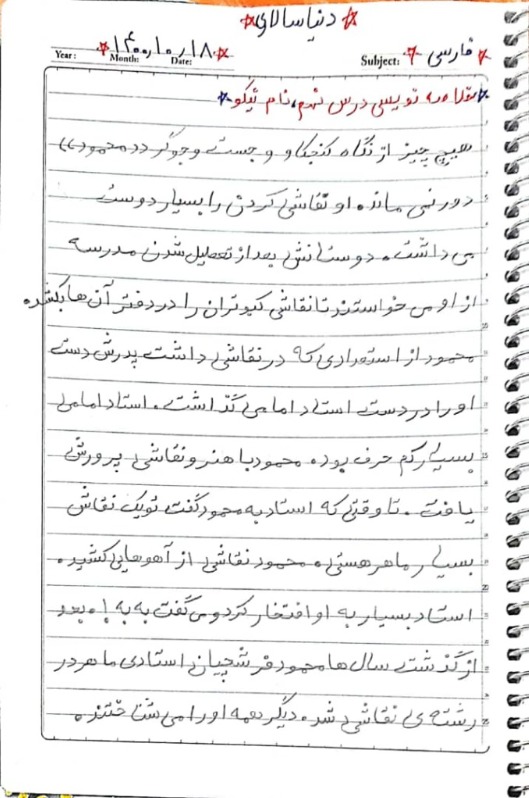 دنیا سالاری
Year: Month: Date: ۱۴۰۰،۱۰،۱۸ Subject: فارسی
خلاصه نویسی درس نهم، نام نیکو
هیچ چیز از نگاه کنجکاو و جست وجو گر ((محمود))
دور نمی ماند. او نقاشی کردن را بسیار دوست
می داشت. دوستانش بعد از تعطیل شدن مدرسه
از او می خواستند تا نقاشی کبوتران را در دفتر آن ها بکشد.
محمود از استعدادی که در نقاشی داشت پدرش دست
او را در دست استاد امامی گذاشت. استاد امامی
بسیار کم حرف بود. محمود با هنر و نقاشی پرورش
یافت. تا وقتی که استاد به محمود گفت تو یک نقاش
بسیار ماهر هستی. محمود نقاشی از آهوهایی کشید.
استاد بسیار به او افتخار کرد و می گفت به به! بعد
از گذشت سال ها محمود فرشچیان استادی ماهر در
رشته ی نقاشی شد. دیگر همه او را می شناختند.